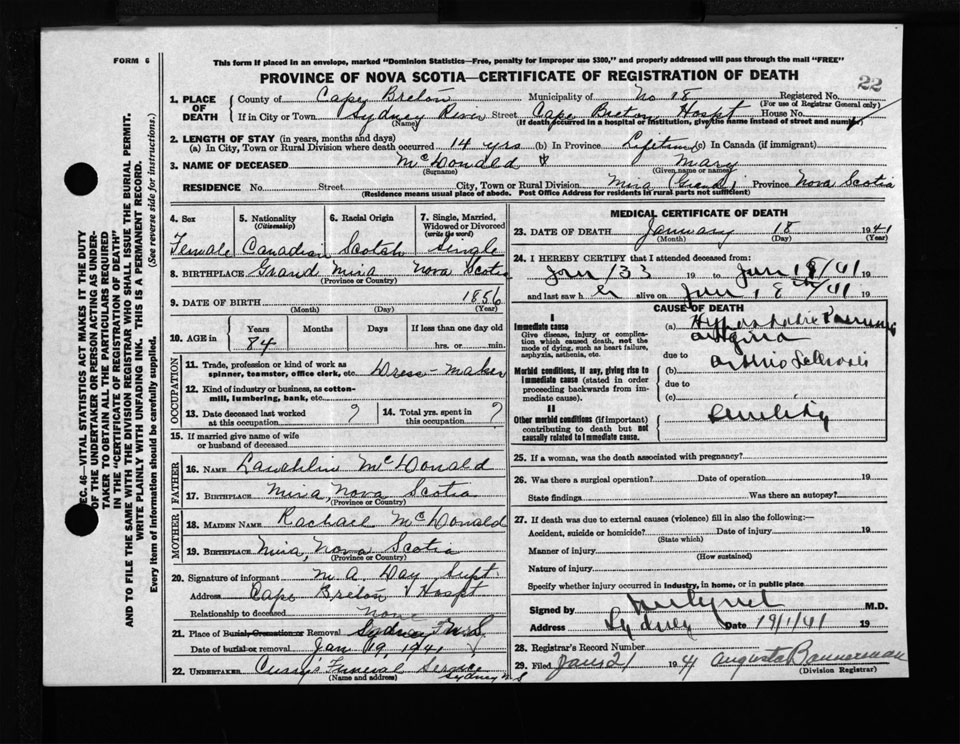 FORM 6
This form if placed in an envelope, marked "Dominion Statistics—Free, penalty for improper use $300," and properly addressed will pass through the mail "FREE"
PROVINCE OF NOVA SCOTIA—CERTIFICATE OF REGISTRATION OF DEATH
22
1. PLACE OF DEATH
County of Cape Breton Municipality of No 18 Registered No.
(For use of Registrar General only)
If in City or Town Sydney River Street Cape Breton Hospt House No.
(Name) (If death occurred in a hospital or institution, give the name instead of street and number)
2. LENGTH OF STAY (in years, months and days)
(a) In City, Town or Rural Division where death occurred 14 yrs (b) In Province Lifetime (c) In Canada (if immigrant)
3. NAME OF DECEASED McDonald Mary
(Surname) (Given name or names)
RESIDENCE No. Street City, Town or Rural Division Mira (Grand) Province Nova Scotia
(Residence means usual place of abode. Post Office Address for residents in rural parts not sufficient)
4. Sex
Female
5. Nationality
(Citizenship)
Canadian
6. Racial Origin
Scotch
7. Single, Married, Widowed or Divorced
(write the word)
Single
8. BIRTHPLACE Grand Mira Nova Scotia
(Province or Country)
9. DATE OF BIRTH 1856
(Month) (Day) (Year)
10. AGE in
Years Months Days If less than one day old
84 hrs. or min.
OCCUPATION
11. Trade, profession or kind of work as spinner, teamster, office clerk, etc. Dress-maker
12. Kind of industry or business, as cotton-mill, lumbering, bank, etc.
13. Date deceased last worked at this occupation ?
14. Total yrs. spent in this occupation ?
15. If married give name of wife or husband of deceased
FATHER
16. NAME Lauchlin McDonald
17. BIRTHPLACE Mira, Nova Scotia
(Province or Country)
MOTHER
18. MAIDEN NAME Rachael McDonald
19. BIRTHPLACE Mira, Nova Scotia
(Province or Country)
20. Signature of informant M. A. Day Supt
Address Cape Breton Hospt
Relationship to deceased None
21. Place of Burial, Cremation or Removal Sydney N.S.
Date of burial or removal Jan 19 1941
22. UNDERTAKER Curry's Funeral Service
(Name and address) Sydney N S
MEDICAL CERTIFICATE OF DEATH
23. DATE OF DEATH January 18 1941
(Month) (Day) (Year)
24. I HEREBY CERTIFY that I attended deceased from:
Jan 1 33 19 to Jan 18/41 19
and last saw h er alive on Jan 18th/41 19
CAUSE OF DEATH
I
Immediate cause
Give disease, injury or complication which caused death, not the mode of dying, such as heart failure, asphyxia, asthenia, etc.
(a) Hypostatic
due to
Morbid conditions, if any, giving rise to immediate cause (stated in order proceeding backwards from immediate cause).
(b)
due to
(c)
II
Other morbid conditions (if important) contributing to death but not causally related to immediate cause.
Senility
25. If a woman, was the death associated with pregnancy?
26. Was there a surgical operation? Date of operation 19
State findings Was there an autopsy?
27. If death was due to external causes (violence) fill in also the following:—
Accident, suicide or homicide? Date of injury 19
(State which)
Manner of injury
(How sustained)
Nature of injury
Specify whether injury occurred in industry, in home, or in public place
Signed by M.D.
Address Sydney Date 19/1/41 19
28. Registrar's Record Number
29. Filed Jan 21 1941 Augusta Bannerman
(Division Registrar)
SEC. 46—VITAL STATISTICS ACT MAKES IT THE DUTY
OF THE UNDERTAKER OR PERSON ACTING AS UNDER-
TAKER TO OBTAIN ALL THE PARTICULARS REQUIRED
IN THE "CERTIFICATE OF REGISTRATION OF DEATH"
AND TO FILE THE SAME WITH THE DIVISION REGISTRAR WHO SHALL ISSUE THE BURIAL PERMIT.
WRITE PLAINLY WITH UNFADING INK. THIS IS A PERMANENT RECORD.
Every item of information should be carefully supplied. (See reverse side for instructions.)